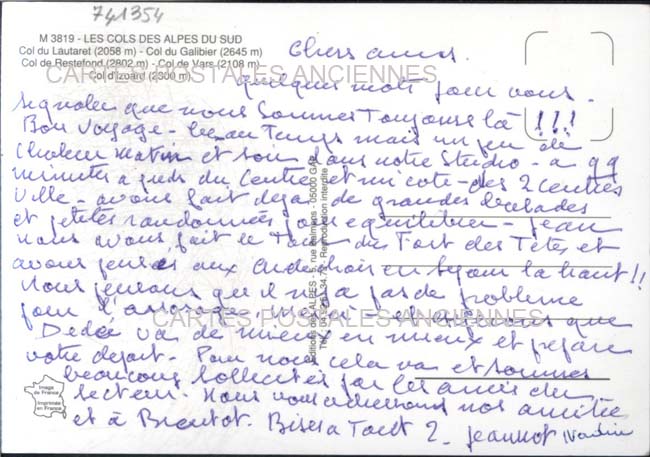 741354
M 3819 - LES COLS DES ALPES DU SUD
Col du Lautaret (2058 m) - Col du Galibier (2645 m)
Col de Restefond (2802 m) - Col de Vars (2108 m)
Col d'Izoard (2360 m)
CARTES POSTALES ANCIENNES
Chers amis.
quelques mots pour vous
signaler que nous sommes toujours là !!!
Bon voyage - beau temps mais un peu de
chaleur matin et soir dans notre studio - a qq
minutes a pieds du centre et mi cote des 2 centres
ville - avons fait deja de grandes balades
et petites randonnées pour equilibrer - Jean
nous avons fait le Tour du Fort des Têtes et
avons pensés aux en sejour la haut !!
Nous pensons qu'il n'y a pas de probleme
pour l'arrosage, - et que
CARTES POSTALES ANCIENNES
Dédée va de mieux en mieux et prepare
votre depart. Pour nous cela va et sommes
beaucoup sollicités par les amis du
secteur. Nous vous adressons nos amitiés
et à Bientot. Bises a Tous 2 - Jeannot
Editions des ALPES - 5, rue - 05000 GAP
Reproduction interdite
Image
de France
Imprimée
en France